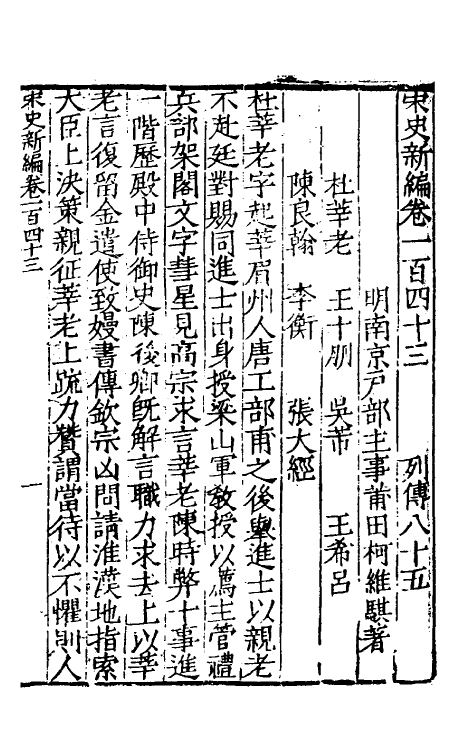 宋史新編卷一百四十三 列傳八十五
明南京戶部主事莆田柯維騏著
杜莘老 王十朋 吳芾 王希呂
陳良翰 李衡 張大經
杜莘老字起莘眉州人唐工部甫之後舉進士以親老
不赴廷對賜同進士出身授梁山軍敎授以薦主管禮
兵部架閣文字彗星見高宗求言莘老陳時弊十事進
一階歷殿中侍御史陳俊卿旣解言職力求去上以莘
老言復留金遣使致嫚書傳欽宗凶問請淮漢地指索
大臣上決策親征莘老上疏力贊謂當待以不懼則人
宋史新編卷一百四十三 一